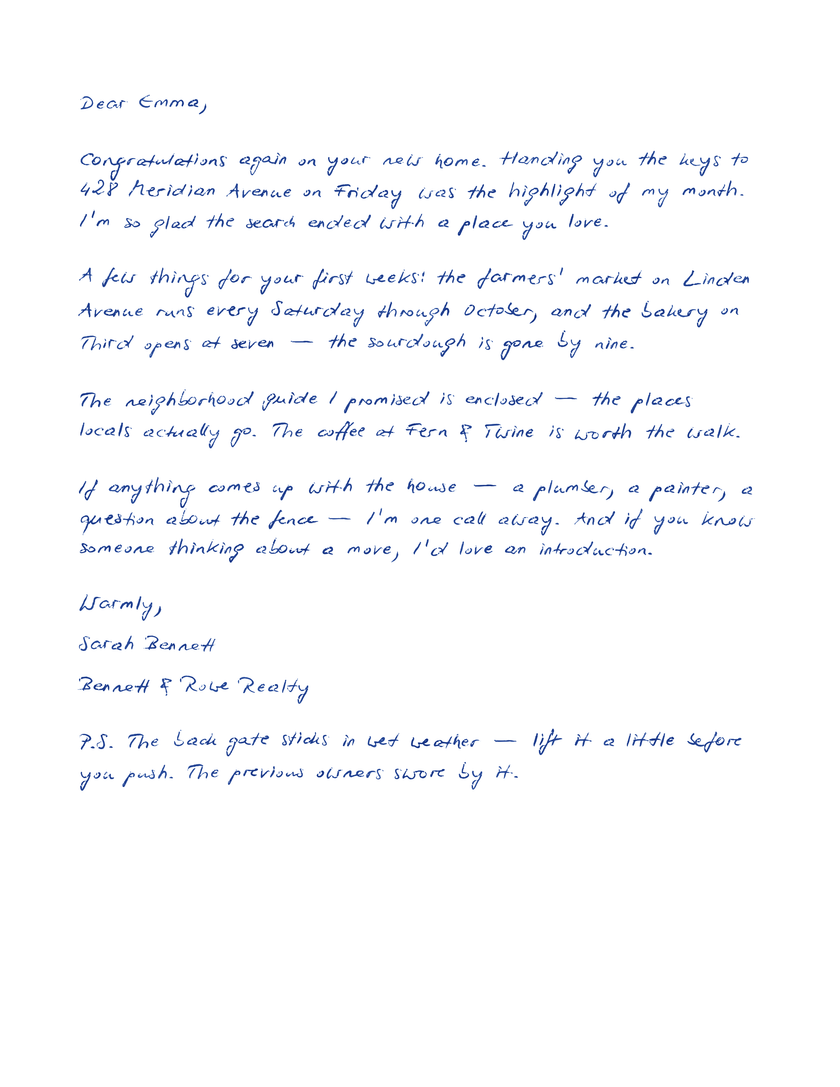 Dear Emma,
Congratulations again on your new home. Handing you the keys to
428 Meridian Avenue on Friday was the highlight of my month.
I'm so glad the search ended with a place you love.
A few things for your first weeks: the farmers' market on Linden
Avenue runs every Saturday through October, and the bakery on
Third opens at seven — the sourdough is gone by nine.
The neighborhood guide I promised is enclosed — the places
locals actually go. The coffee at Fern & Twine is worth the walk.
If anything comes up with the house — a plumber, a painter, a
question about the fence — I'm one call away. And if you know
someone thinking about a move, I'd love an introduction.
Warmly,
Sarah Bennett
Bennett & Rowe Realty
P.S. The back gate sticks in wet weather — lift it a little before
you push. The previous owners swore by it.